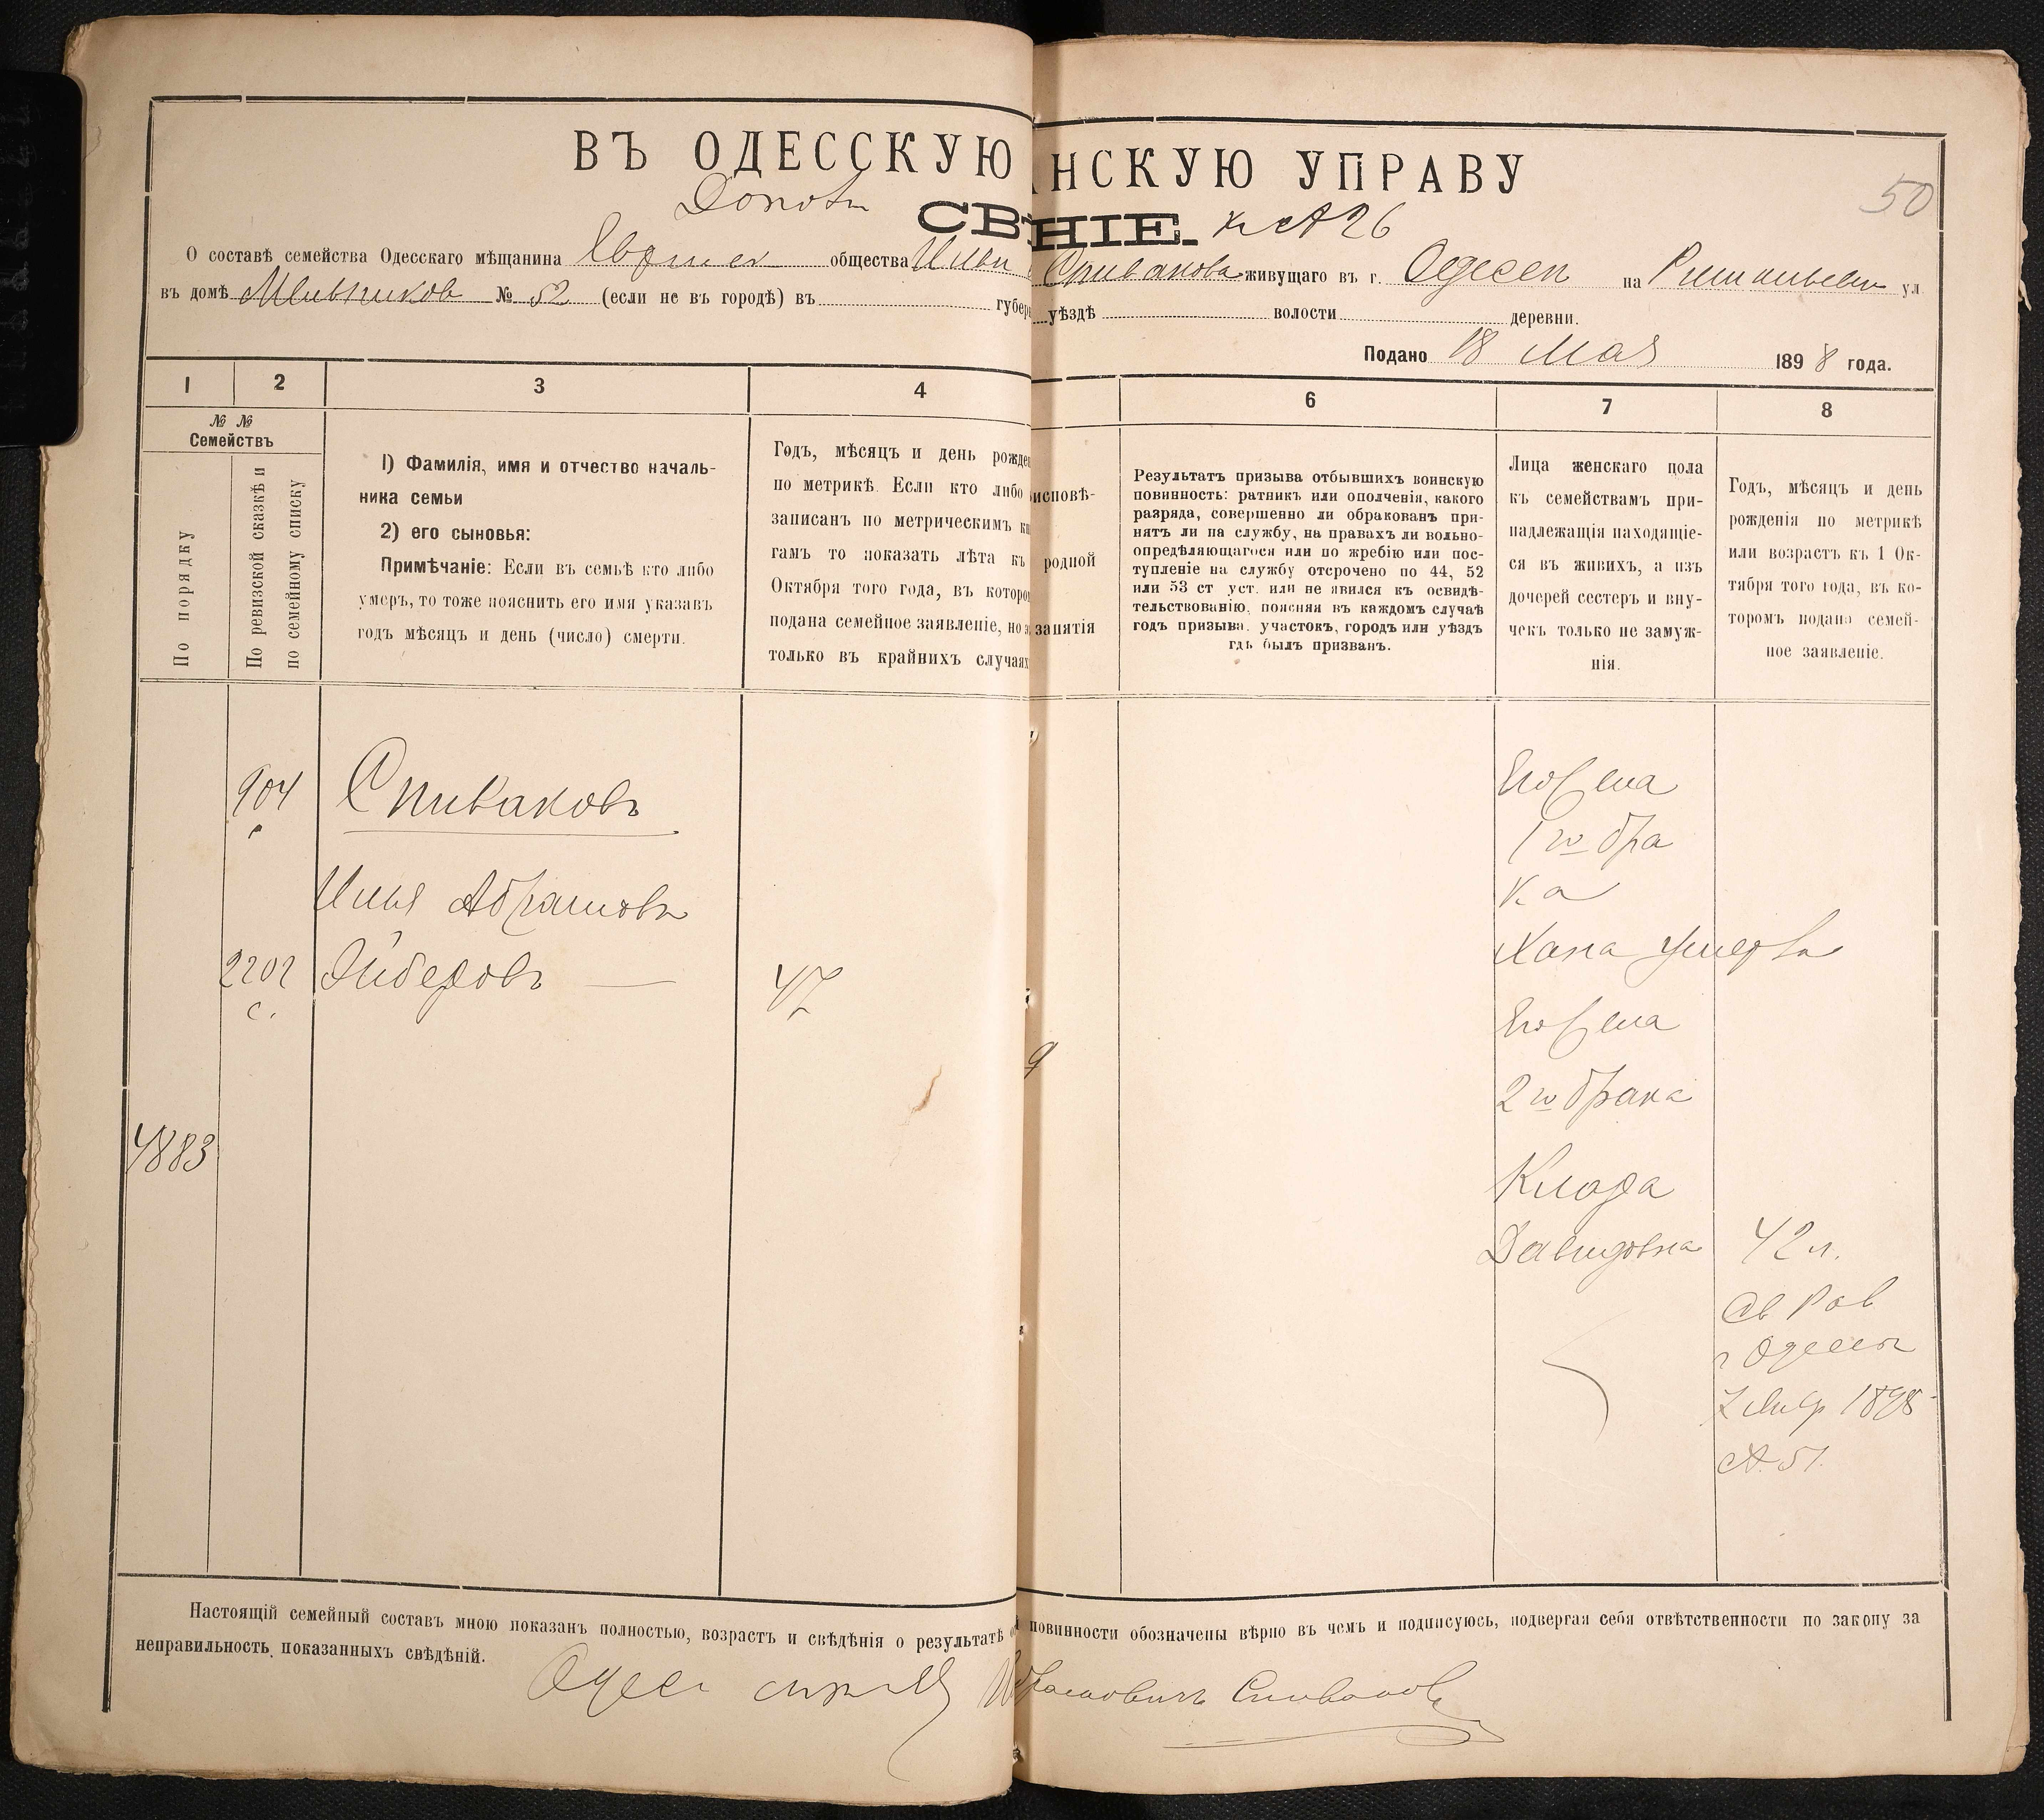 ВЪ ОДЕССКУЮ НСКУЮ УПРАВУ
50
СВ НІЕ. к № 26
О составѣ семейства Одесскаго мѣщанина общества Ильи Спивакова живущаго въ г. Одессѣ на ул
въ домѣ № 52 (если не въ городѣ) въ губер уѣздѣ волости деревни.
Подано 18 Мая 1898 года.
1 2 3 4 6 7 8
№ №
Семействъ
По порядку
По ревизской сказкѣ и
по семейному списку
1) Фамилія, имя и отчество началь-
ника семьи
2) его сыновья:
Примѣчаніе: Если въ семьѣ кто либо
умеръ, то тоже пояснить его имя указавъ
годъ мѣсяцъ и день (число) смерти.
Годъ, мѣсяцъ и день рожде
по метрикѣ. Если кто либо
записанъ по метрическимъ кн
гамъ то показать лѣта къ
Октября того года, въ которо
подана семейное заявленіе, но э
только въ крайнихъ случаях
исповѣ-
родной
занятія
Результатъ призыва отбывшихъ воинскую
повинность: ратникъ или ополченія, какого
разряда, совершенно ли обракованъ при-
нятъ ли на службу, на правахъ ли вольно-
опредѣляющагося или по жребію или пос-
тупленіе на службу отсрочено по 44, 52
или 53 ст уст. или не явился къ освидѣ-
тельствованію, поясняя въ каждомъ случаѣ
годъ призыва, участокъ, городъ или уѣздъ
гдѣ былъ призванъ.
Лица женскаго пола
къ семействамъ при-
надлежащія находящіе-
ся въ живихъ, а изъ
дочерей сестеръ и вну-
чекъ только не замуж-
нія.
Годъ, мѣсяцъ и день
рожденія по метрикѣ
или возрастъ къ 1 Ок-
тября того года, въ ко-
торомъ подано семей-
ное заявленіе.
904
Спиваковъ
Илья Абрамовъ
2202
с.
Лейберовъ
47
4883
9
Его жена
1го бра
ка
Хана умерла
Его жена
2го брака
Клара
Давидовна
42 л.
Св Рав
г Одессы
1898
№ 51.
Настоящій семейный составъ мною показанъ полностью, возрастъ и свѣдѣнія о результатѣ о й повинности обозначены вѣрно въ чемъ и подписуюсь, подвергая себя отвѣтственности по закону за
неправильность показанныхъ свѣдѣній.
Одес брамовичъ Спиваковъ